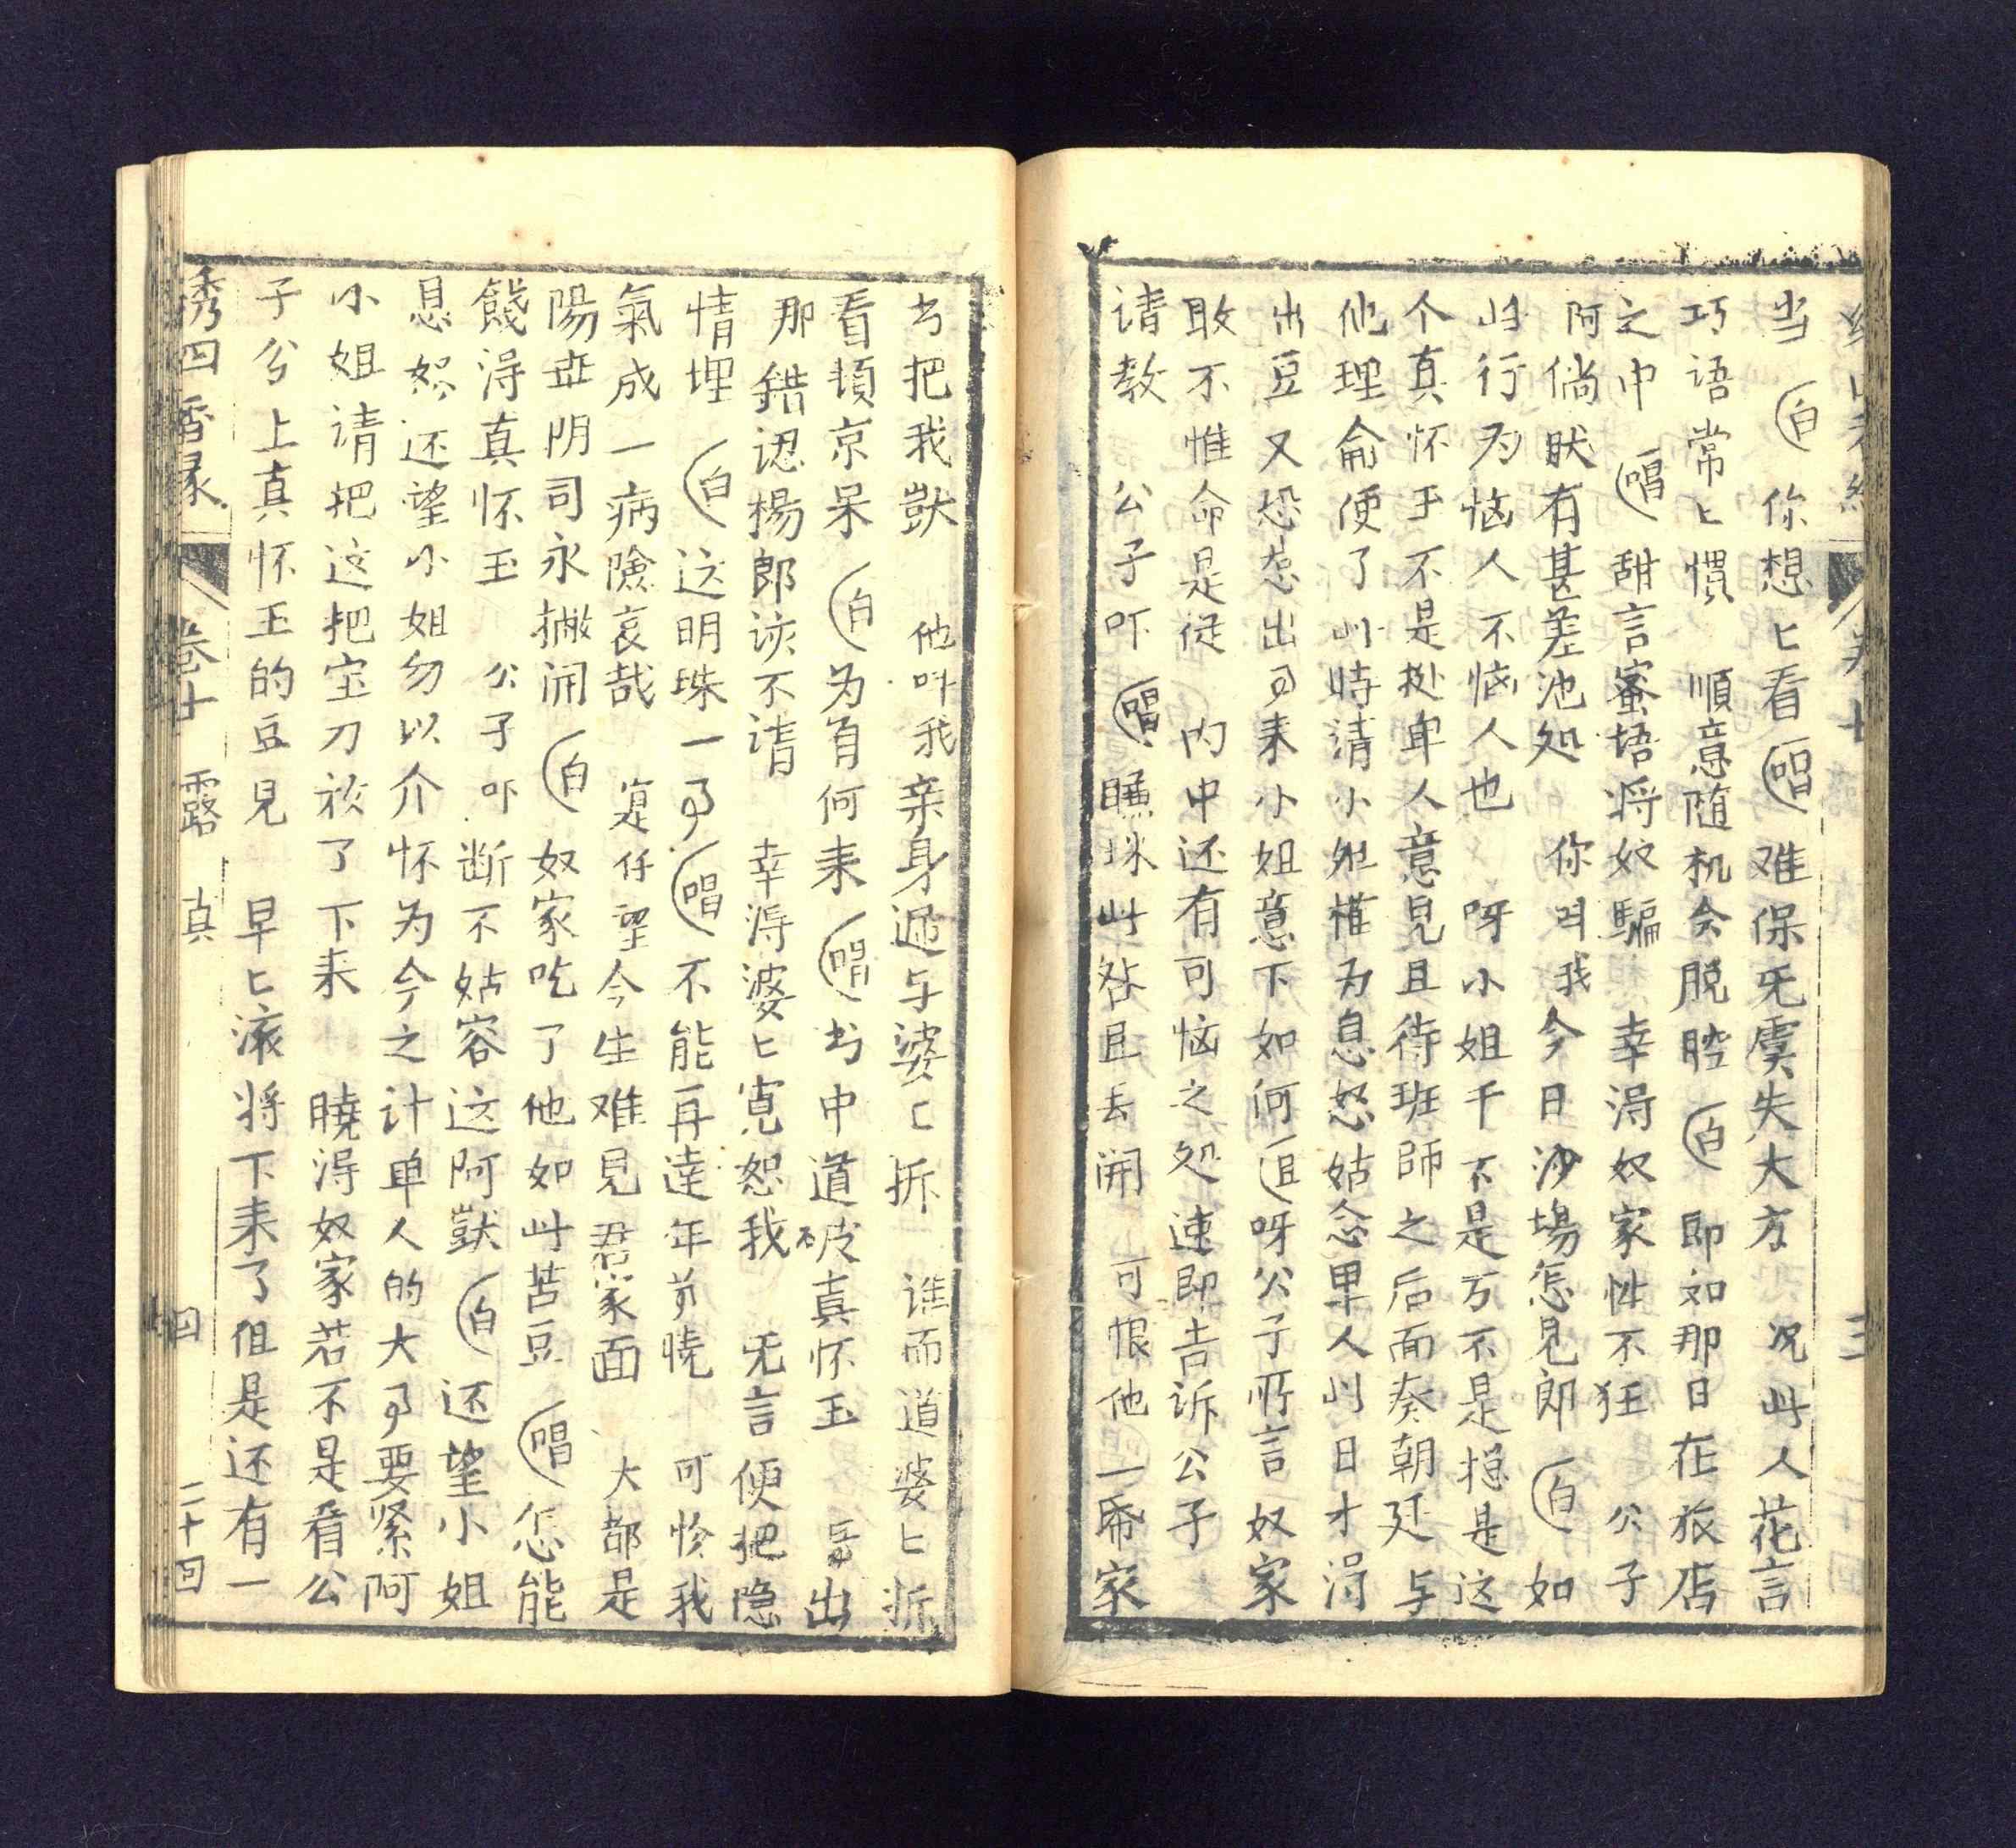 当　白　你想〻看　唱　难保旡虞失大方　况此人花言
巧语常〻慣　順意随机会脱腔　白　即如那日在旅店
之中　唱　甜言蜜语将奴騙　幸淂奴家性不狂　公子
阿倘肰有甚差池处　你叫我今日沙場怎見郎　白　如
此行为恼人不恼人也　呀小姐千不是万不是揔是这
个真怀玉不是处卑人意見且待班師之后面奏朝廷与
他理侖便了此時清小姐権为息怒姑念畢人此日才淂
出豆又恐惹出事来小姐意下如何　旦　呀公子所言奴家
敢不惟命是從　内中还有可恼之处速即告诉公子
请教　公子吓　唱　瞧咪此咎且去開　可恨他一席家
书把我獃　他叫我亲身逓与婆〻拆　谁而道婆〻拆
看頓京呆　白　为有何来　唱　书中道破真怀玉　出
那錯認楊郎该不请　幸淂婆〻寛恕我　旡言便把隐
情埋　白　这明珠一事　唱　不能再逹年前曉　可怜我
氣成一病險哀哉　寔仔望今生难見君家面　大都是
陽臺阴司永撇開　白　奴家吃了他如此苦豆　唱　怎能
餞淂真怀玉　公子吓断不姑容这阿獃　白　还望小姐
息怒还望小姐勿以介怀为今之计卑人的大事要紧阿
小姐请把这把宝刀放了下来　曉淂奴家若不是看公
子分上真怀玉的豆見　早〻滚将下来了但是还有一
綉四香縁　卷十　露真　四　二十四